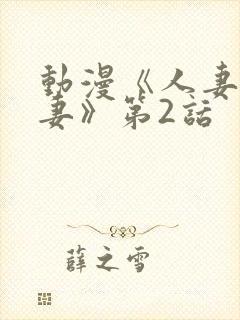 動漫《人妻
妻》第2話
薛之雪